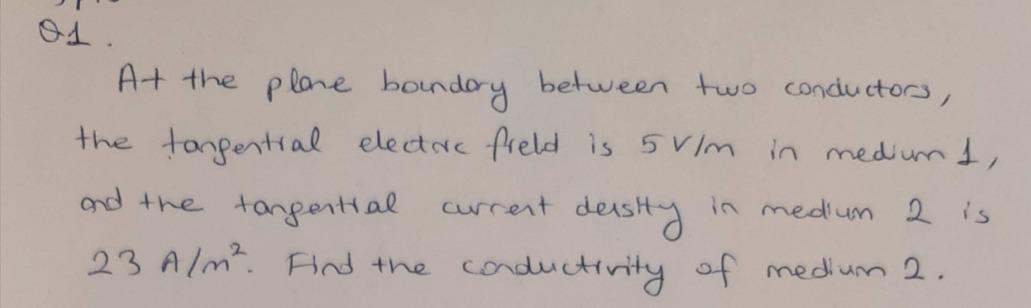 Q1.
At the plane boundary between two conductors,
the tangential electric field is 5 V/m in medium 1,
and the tangential current density in medium 2 is
23 A/m². Find the conductivity of medium 2.